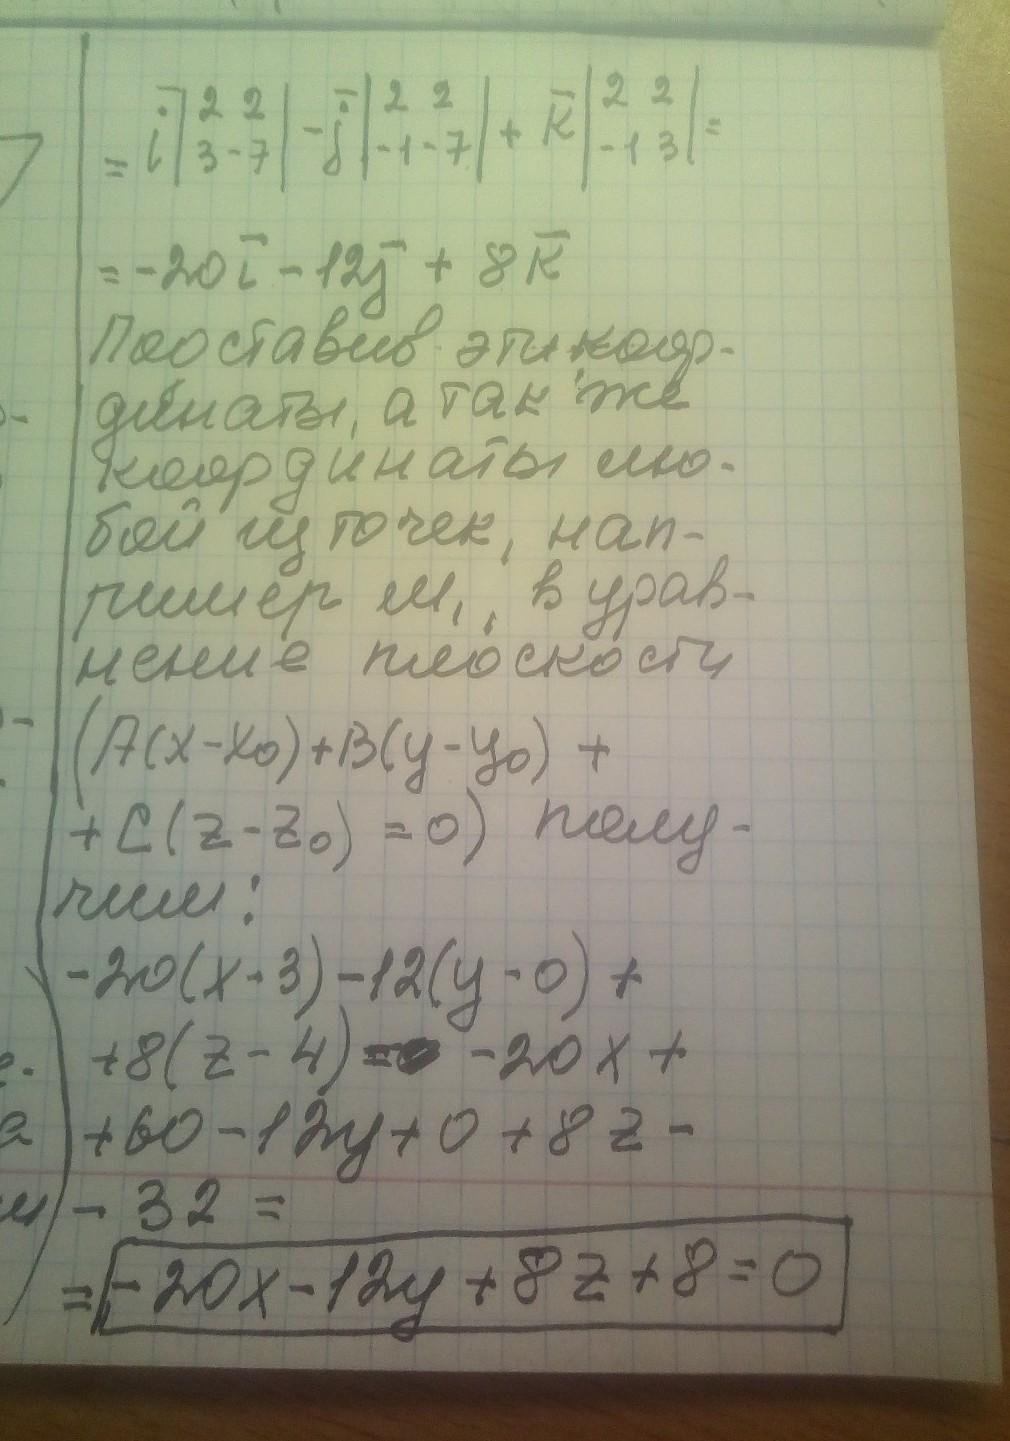 = i̅ |2 2; 3 -7| - j̅ |2 2; -1 -7| + k̅ |2 2; -1 3| =
= -20i̅ - 12j̅ + 8k̅
Подставив эти коор-
динаты, а так же
координаты лю-
бой из точек, нап-
ример M₁, в урав-
нение плоскости
(A(x-x₀)+B(y-y₀) +
+ C(z-z₀) = 0) полу-
чим:
-20(x-3)-12(y-0) +
+8(z-4) = -20x +
+60-12y+0+8z-
- 32 =
= -20x-12y+8z+8=0